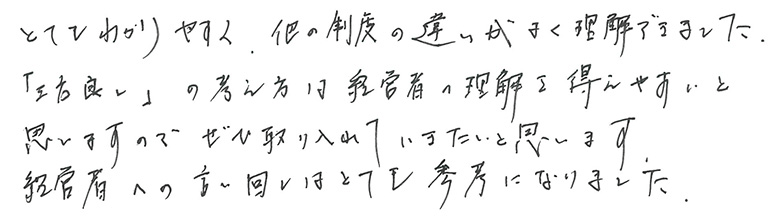 とてもわかりやすく、他の制度の違いがよく理解できました。
「三方良し」の考え方は経営者の理解を得えやすいと
思いますのでぜひ取り入れていきたいと思います
経営者への言い回しはとても参考になりました。